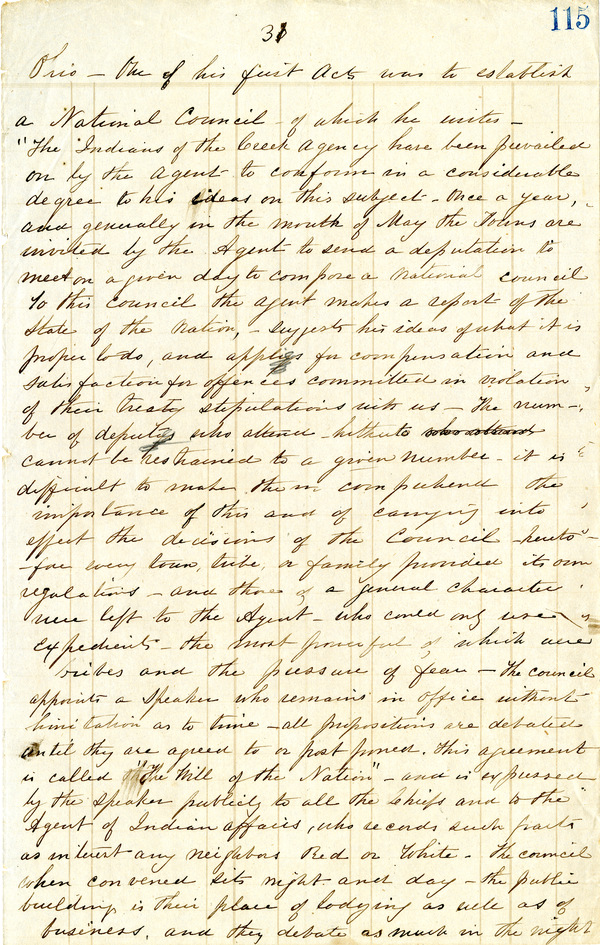 115
31
Ohio — One of his first Acts was to establish
a National Council — of which he writes —
"The Indians of the Creek Agency have been prevailed
on by the Agent to conform in a considerable
degree to his ideas on this subject — Once a year,
and generally in the month of May the Towns are
invited by the Agent to send a deputation to
meet on a given day to compose a National council
To this council the agent makes a report of the
State of the Nation, — suggests his ideas of what it is
proper to do, and applies for compensation and
satisfaction for offences committed in violation
of their treaty stipulations with us — The num-
ber of deputies who attend — hitherto who attend
cannot be restrained to a given number — it is
difficult to make them comprehend the
importance of this and of carrying into
effect the decisions of the Council — hereto"
fore every town, tribe, or family provided its own
regulations — and those of a general character
were left to the Agent — who could only use
expedients — the most powerful of which were
bribes and the pressure of fear — The council
appoints a Speaker who remains in office without
limitation as to time — all propositions are debated
until they are agreed to or postponed. This agreement
is called "The Will of the Nation" — and is expressed
by the Speaker publicly to all the Chiefs and to the
Agent of Indian affairs, who records such parts
as interest any neighbors Red or White — The council
when convened sits night and day — the public
building is their place of lodging as well as of
business, and they debate as much in the night